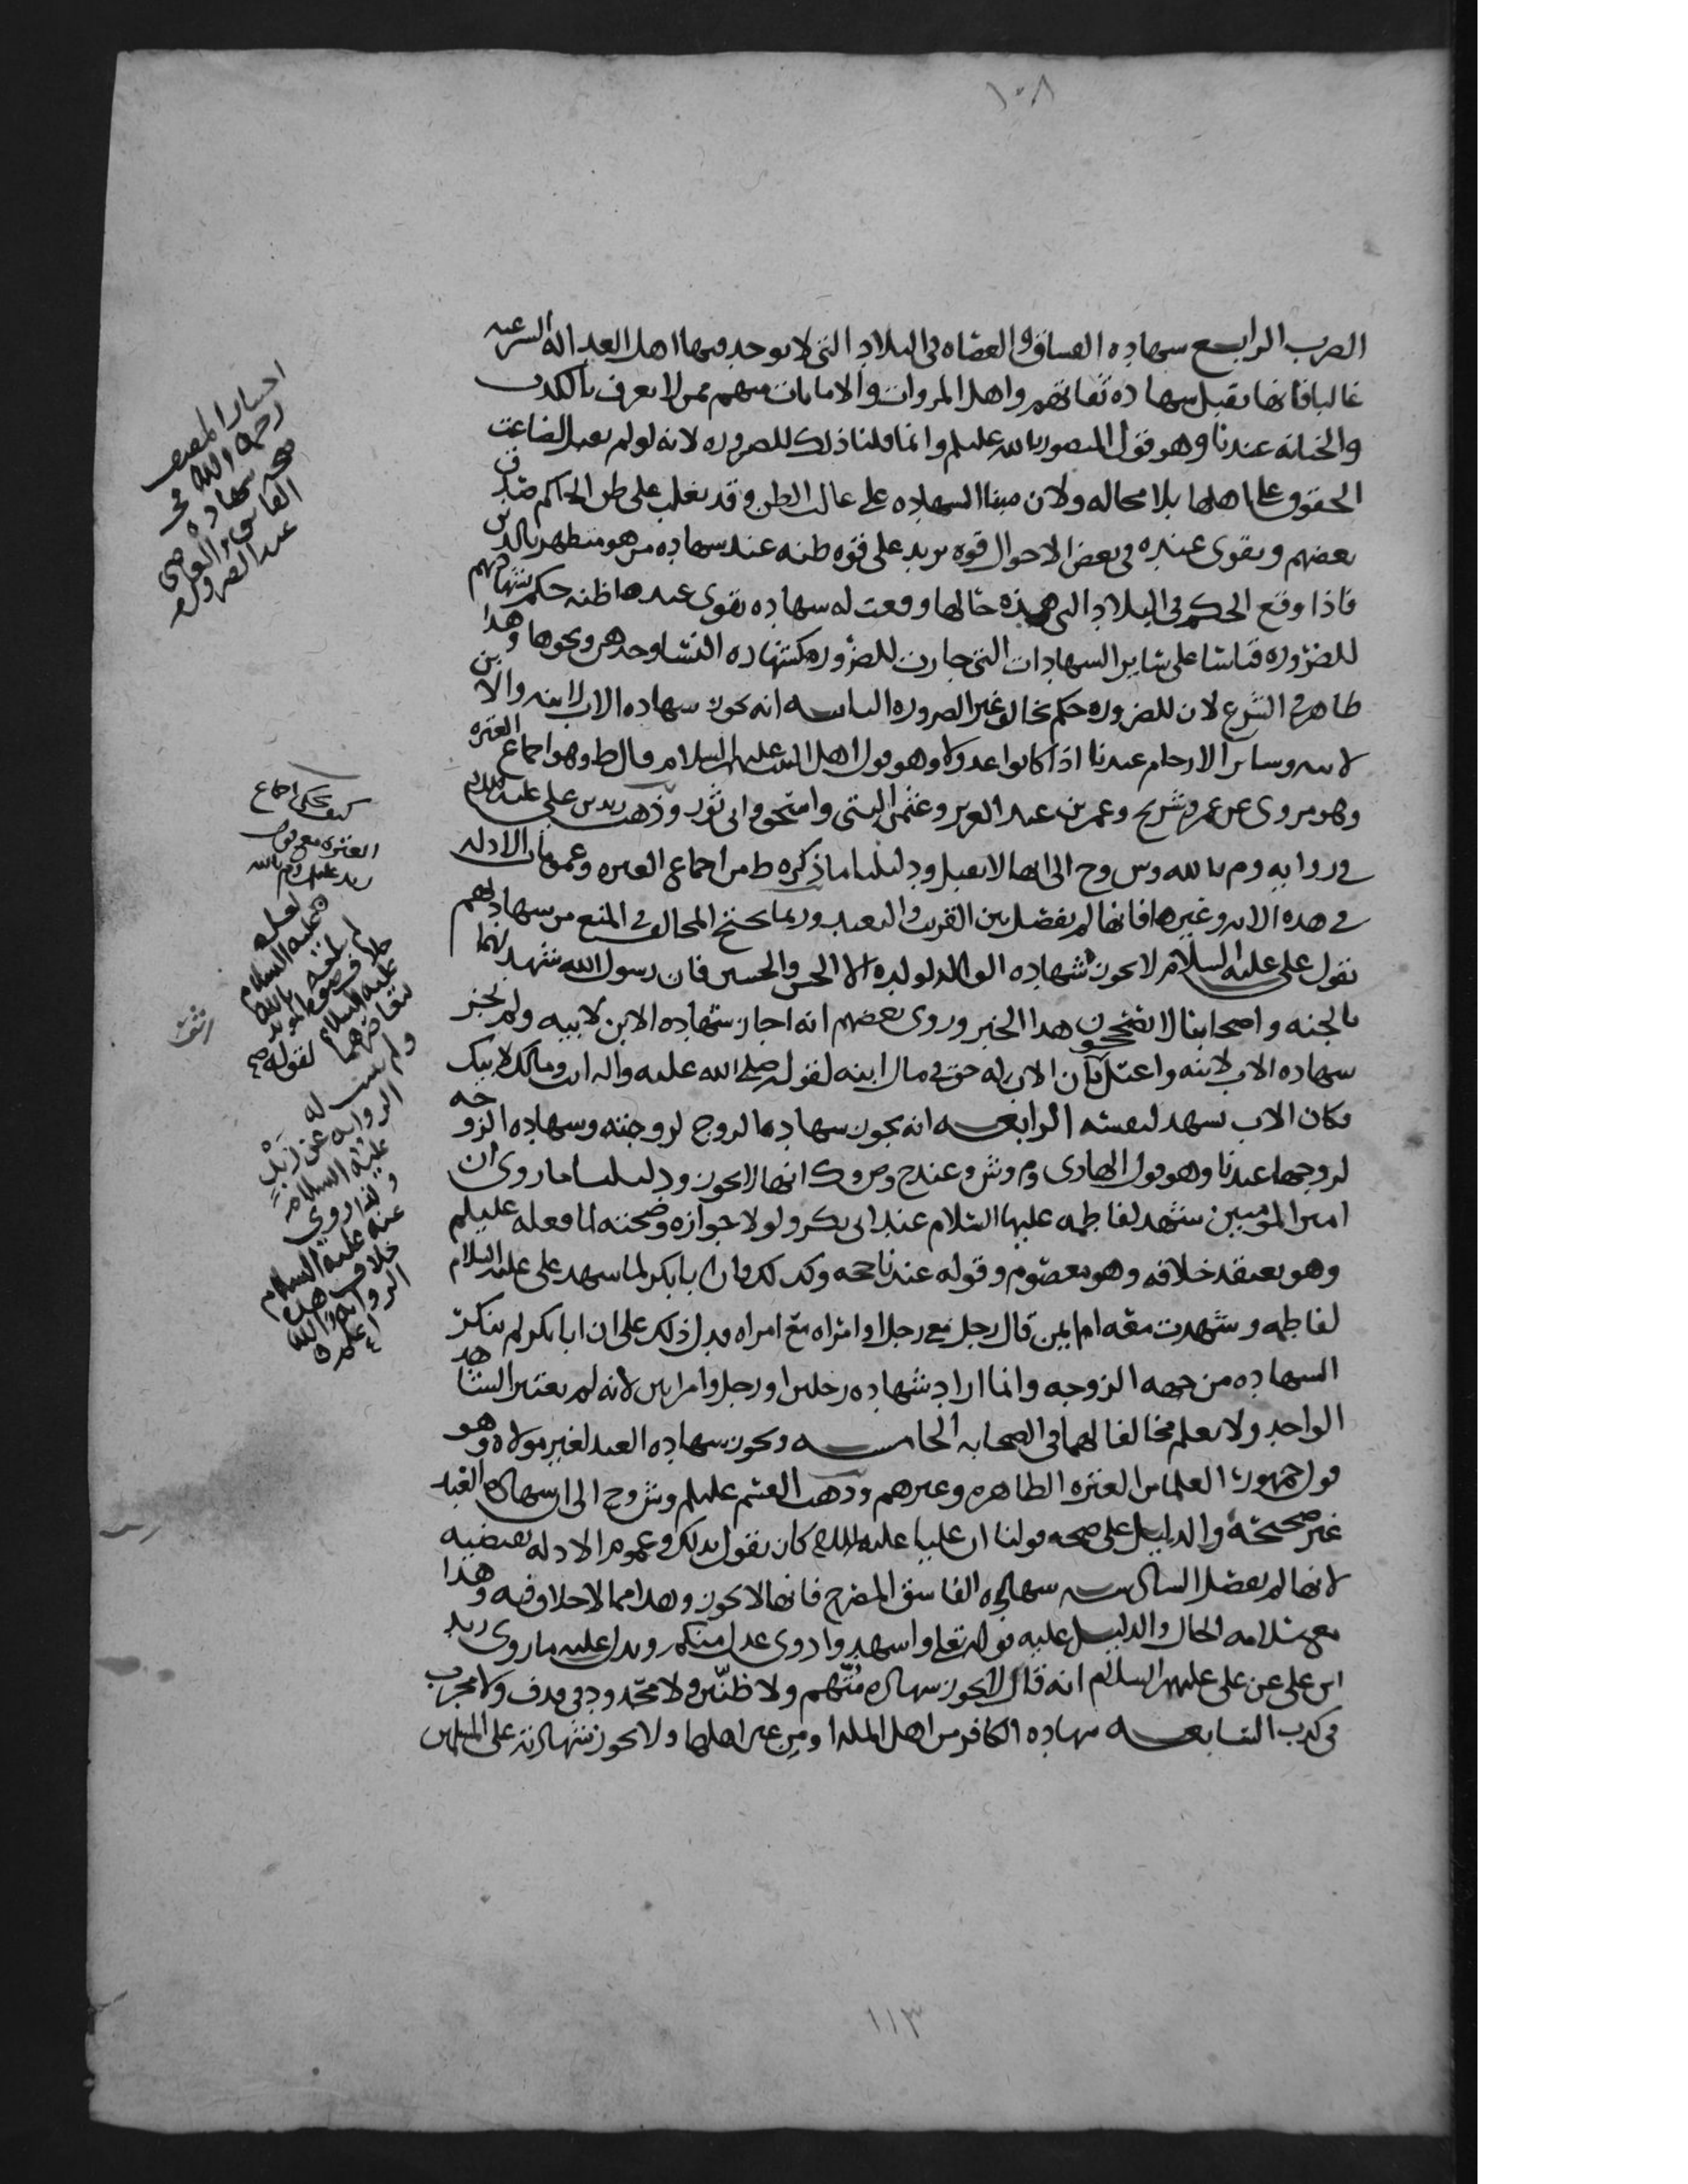 ١٠٨
الضرب الرابع شهاده الفساق والعصاه في البلاد التي لا يوجد فيها اهل العداله الشرعيه
غالبا فانها تقبل شهاده ثقاتهم واهل المروات والامانات منهم ممن لا يعرف بالكذب
والخيانه عندنا وهو قول المنصور بالله عليلم وانما قلنا ذلك للضروره لانه لو لم تقبل لضاعت
الحقوق على اهلها بلا محاله ولان مبنا الشهاده على غالب الظن وقد يغلب على ظن الحاكم صدق
بعضهم ويقوى عنده في بعض الاحوال قوه تزيد على قوه ظنه عند شهاده من هو متظهر بالدين
فاذا وقع الحكم في البلاد التي هذه حالها ووقعت له شهاده يقوى عندها ظنه حكم بشهادتهم
للضروره قياسا على سائر الشهادات التي جازت للضروره كشهاده النسا وحدهن ونحوها وهذا
ظاهر في الشرع لان للضروره حكم يخالف غير الضروره الثالثه انه يجوز شهاده الاب لابنه والابن
لابيه وسائر الارحام عندنا اذا كانوا عدولا وهو قول اهل البيت عليهم السلام قال ط وهو اجماع العتره
وهو مروي عن عمر وشريح وعمر بن عبد العزيز وعثمن البتي واسحق وابي ثور وذهب زيد بن علي عليه السلام
في روايه وم بالله وش وح الى انها لا تقبل ودليلنا ما ذكره ط من اجماع العتره وعمومات الادله
في هذه الايه وغيرها فانها لم تفصل بين القريب والبعيد وربما يحتج المخالف في المنع من شهادتهم
بقول علي عليه السلام لا يجوز شهاده الوالد لولده الا الحسن والحسين فان رسول الله شهد لهما
بالجنه واصحابنا لا يصححون هذا الخبر وروى بعضهم انه اجاز شهاده الابن لابيه ولم يجز
شهاده الاب لابنه واعتل بان الاب له حق في مال ابنه لقوله صلى الله عليه واله انت ومالك لابيك
فكان الاب يشهد لنفسه الرابعه انه يجوز شهاده الزوج لزوجته وشهاده الزوجه
لزوجها عندنا وهو قول الهادي وم وش وعند ح وص وك انها لا يجوز ودليلنا ما روي ان
امير المومنين شهد لفاطمه عليها السلام عند ابي بكر ولولا جوازه وصحته لما فعله عليلم
وهو يعتقد خلافه وهو معصوم وقوله عندنا حجه وكذلك فان ابا بكر لما شهد علي عليه السلام
لفاطمه وشهدت معه ام ايمن قال رجل مع رجل او امراه مع امراه فدل ذلك على ان ابا بكر لم ينكر
الشهاده من جهه الزوجه وانما اراد شهاده رجلين او رجل وامراتين لانه لم يعتبر الشاهد
الواحد ولا يعلم مخالفا لهما في الصحابه الخامسه ويجوز شهاده العبد لغير مولاه وهو
قول جمهور العلما من العتره الطاهره وغيرهم وذهب القسم عليلم وش وح الى ان شهاده العبد
غير صحيحه والدليل على صحه قولنا ان عليا عليه السلام كان يقول بذلك وعموم الادله تقتضيه
لانها لم تفصل السادسه شهاده الفاسق المصرح فانها لا يجوز وهذا مما لا خلاف فيه وهذا
مع سلامه الحال والدليل عليه قوله تعلى واشهدوا ذوى عدل منكم ويدل عليه ما روى زيد
ابن علي عن علي عليهم السلام انه قال لا يجوز شهاده متهم ولا ظنين ولا محدود في قذف ولا مجرب
في كذب السابعه شهاده الكافر من اهل المله او من غير اهلها ولا يجوز شهادته على المسلمين
اختيار المصنف
رحمه الله في
صحه شهاده
الفاسق والعاصي
عند الضروره
كيف يحكى اجماع
العتره مع قول
زيد عليلم وم بالله
لعله
عليه السلام
لم يبلغه
خلاف
عليه السلام
ولم يثبت له
الروايه عن زيد
عليه السلام
ولذا روي
عنه عليه السلام
خلاف هذه
الروايه والله
اعلم
١١٣